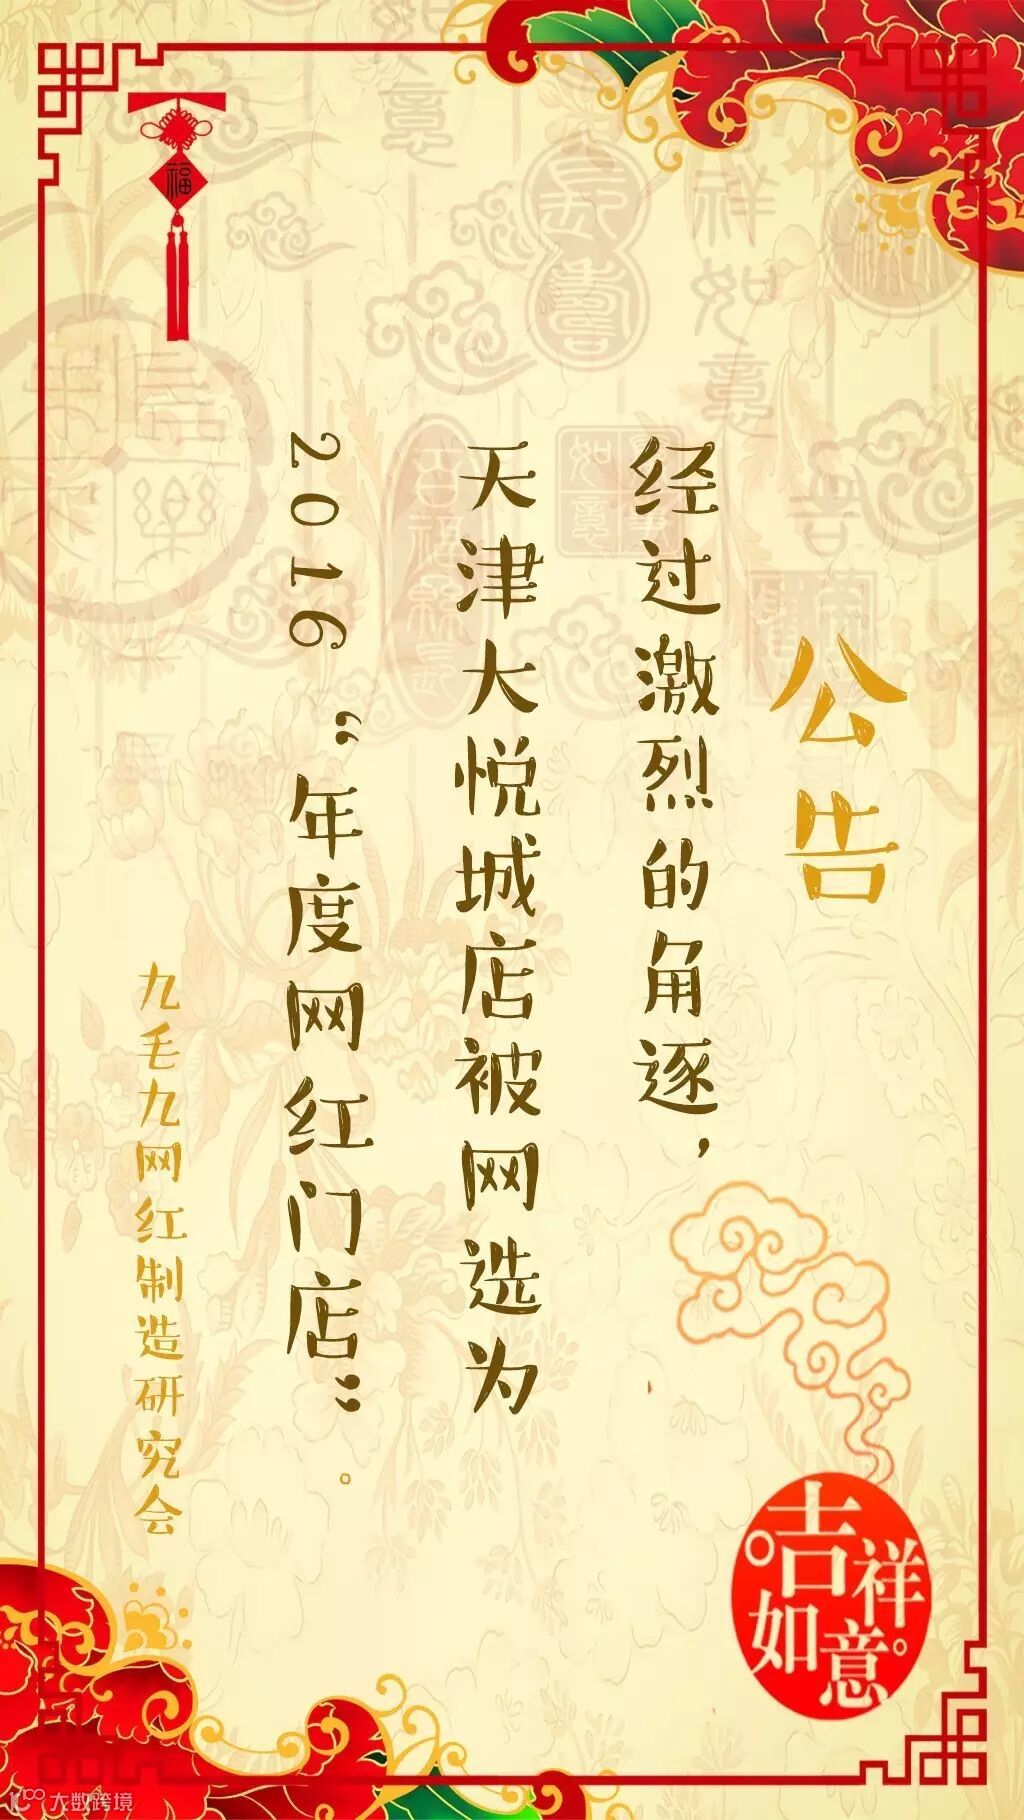 公告
经过激烈的角逐，
天津大悦城店被网选为
2016“年度网红门店”。
九毛九网红制造研究会
吉祥
如意
福
大数跨境